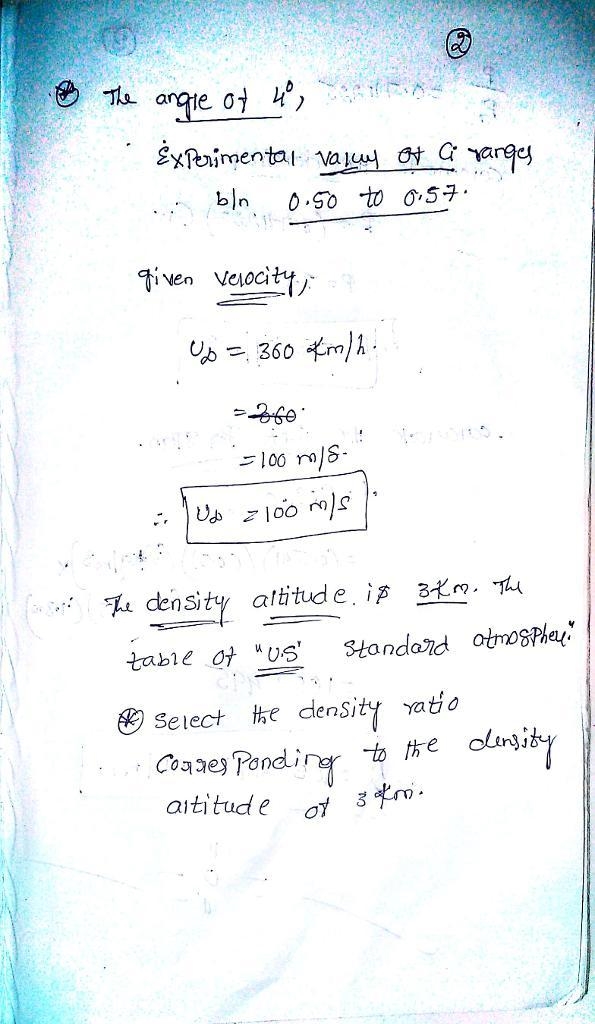 ②
⊛ The angle of 4°,
Experimental values of Cl ranges
b/n 0.50 to 0.57.
given velocity,
U∞ = 360 Km/h.
= 360
= 100 m/s.
∴ U∞ = 100 m/s
The density altitude is 3Km. The
table of "U.S" Standard atmosphere"
⊛ Select the density ratio
Corresponding to the density
altitude of 3 Km.